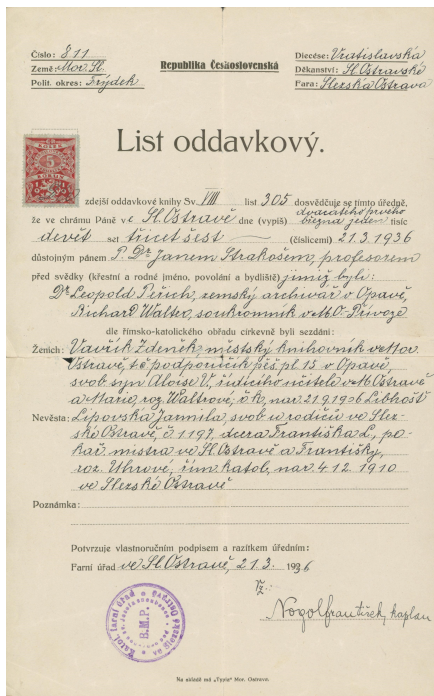 Číslo: 811
Země: Mor. Sl.
Polit. okres: Frýdek
Republika Československá
Diecése: Vratislavská
Děkanství: Sl. Ostravské
Fara: Slezská Ostrava
List oddavkový.
KOLEK
5
zdejší oddavkové knihy Sv. VIII list 305 dosvědčuje se tímto úředně,
že ve chrámu Páně v e Sl. Ostravě dne (vypiš) dvacátého prvého března jeden tisíc
devět set třicet šest (číslicemi) 21. 3. 1936
důstojným pánem P. Dr. Janem Strakošem, profesorem
před svědky (křestní a rodné jméno, povolání a bydliště) jimiž byli:
Dr. Leopold Peřich, zemský archivář v Opavě,
Richard Waltro, soukromník v M. O.-Přívoze
dle římsko-katolického obřadu církevně byli sezdáni:
Ženich: Vavřík Zdeněk, městský knihovník v Mor.
Ostravě, t. č. podporučík pěš. pl. 15 v Opavě,
svob. syn Aloise V., řídícího učitele v M. Ostravě
a Marie, roz. Waltrové, ř. k., nar. 21. 9. 1906 Libhošť
Nevěsta: Lipovská Jarmila, svob. u rodičů ve Slez-
ské Ostravě, č. 1197, dcera Františka L., po-
kař. mistra ve Sl. Ostravě a Františky,
roz. Uhrové, řím. katol., nar. 4. 12. 1910
ve Slezské Ostravě
Poznámka:
Potvrzuje vlastnoručním podpisem a razítkem úředním:
Farní úřad ve Sl. Ostravě, 21. 3. 1936
Nogol František, kaplan
Katol. farní úřad
B. M. P.
Slezské Ostravě
Na skladě má „Typia" Mor. Ostrava.